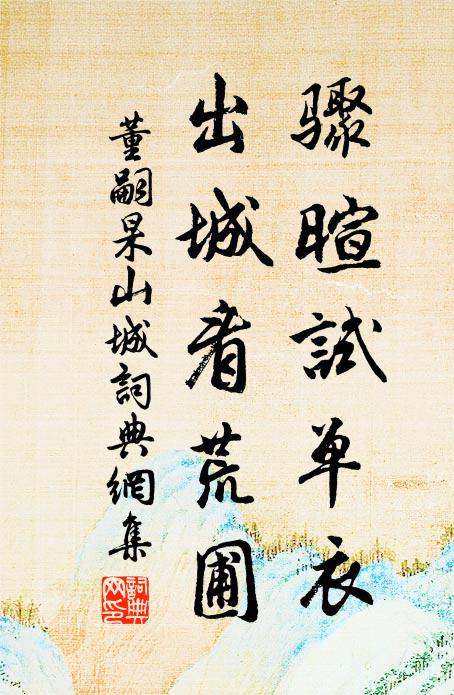 骤暄試单衣
出城看荒圃
董嗣杲山城詞典網集
詞典网印